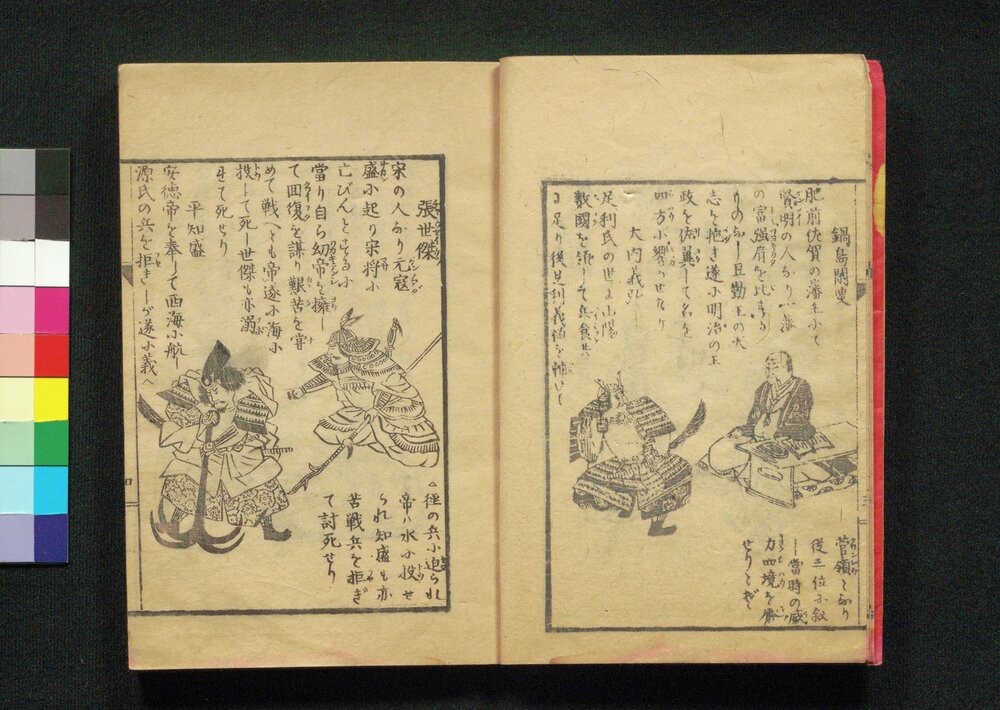 鍋島閑叟
肥前佐賀の藩主小て
賢明の人なり一藩
の富強肩を比する
ものなし且勤王の大
志を抱き遂小明治の王
政を佐翼して名を
四方小響かせたり
大内義弘
足利氏の世よ山陽
数国を領して兵食共
に足り後足利義植を輔けて
管領となり
従三位小叙
し当時の威
力四境を震
せりとぞ
張世傑
宋の人なり元寇
盛小起り宋将小
亡びんとする小
當り自ら幼帝を擁し
て回復を謀り艱苦を甞
めて戦へとも帝遂小海小
投して死し世傑も亦溺
れて死せり
平知盛
安徳帝を奉して西海小航し
源氏の兵を拒きしが遂小義
経の兵小迫られ
帝ハ水小投せ
られ知盛も亦
苦戦兵を拒ぎ
て討死せり